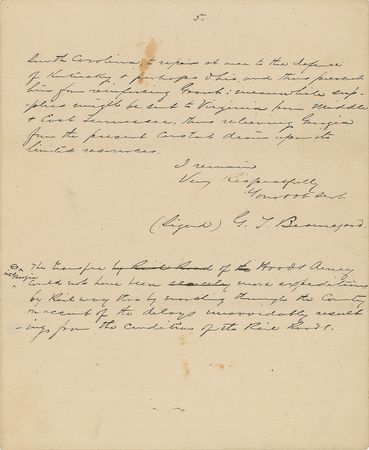 5.
South Carolina, to repair at once to the defense
of Kentucky, & perhaps Ohio, and thus prevent
him from reinforcing Grant; meanwhile sup-
plies might be sent to Virginia from Middle
& East Tennessee, thus relieving Georgia
from the present constant drain upon its
limited resources.
I remain
Very Respectfully
Your obt Servt
(Signed) G. T. Beauregard.
The transfer by Rail Road of the Hoods Army
Georgia
could not have been more expeditious
by Railway than by marching through the Country
on account of the delays unavoidably result-
-ing from the condition of the Rail Roads.